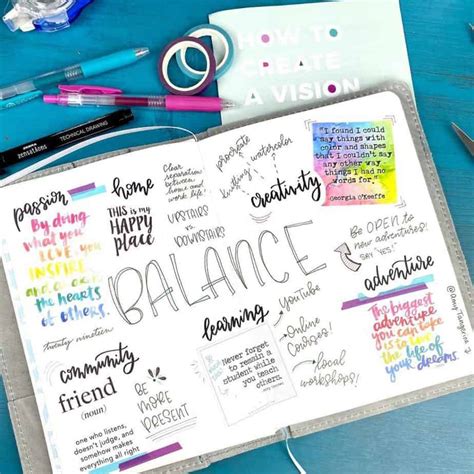 HOW TO
CREATE
A VISION
sensations
TECHNICAL DRAWING
passion
By doing
what you
LOVE, you
INSPIRE
the hearts
of others.
twenty nineteen
home
THIS is MY
HAPPY
PLACE
Clear
separation
between
home and
work life!
UPSTAIRS
vs.
DOWNSTAIRS
procreate
knitting
watercolor
creativity
"I found I could
say things with
color and shapes
that I couldn't say
any other way
things I had
no words for."
Georgia O'Keeffe
BALANCE
Be OPEN to
new adventures!
SAY "YES!"
adventure
The biggest
adventure
you can take
is to live
the life of
your dreams.
learning
YouTube
Online
Courses!
local
workshops!
never forget
to remain a
student while
you teach
others.
community
friend
(noun)
one who listens,
doesn't judge, and
somehow makes
everything all right
BE
MORE
PRESENT